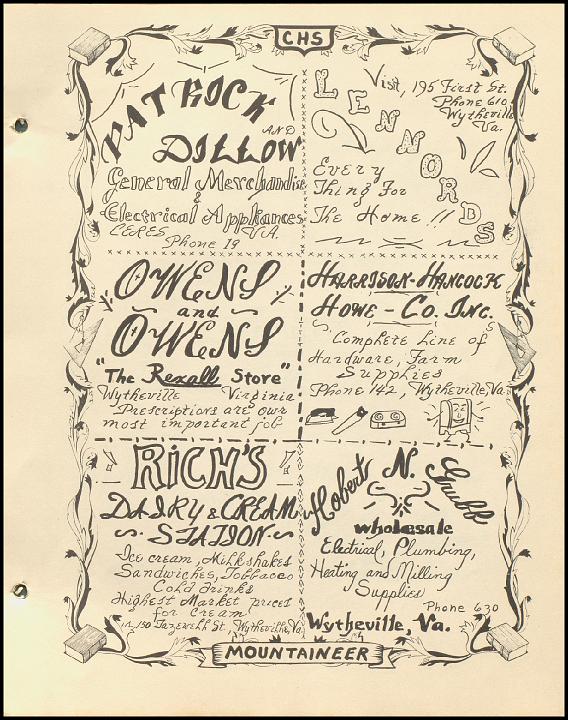 CHS
PATRICK
AND
DILLOW
General Merchandise
&
Electrical Appliances
CERES VA.
Phone 19
LENNORDS
Visit, 195 First St.
Phone 610
Wytheville
Va.
Every
Thing For
The Home!!
OWENS
and
OWENS
"The Rexall Store"
Wytheville Virginia
Prescriptions are our
most important job
HARRISON-HANCOCK
HOWE-CO. INC.
Complete Line of
Hardware, Farm
Supplies
Phone 142, Wytheville, Va.
RICH'S
DAIRY & CREAM
STATION
Ice cream, Milkshakes
Sandwiches, Tobbacao
Cold drinks
Highest Market prices
for Cream
Tazewell St. Wytheville, Va.
N. Grubb
wholesale
Electrical, Plumbing,
Heating and Milling
Supplies
Phone 630
Wytheville, Va.
MOUNTAINEER